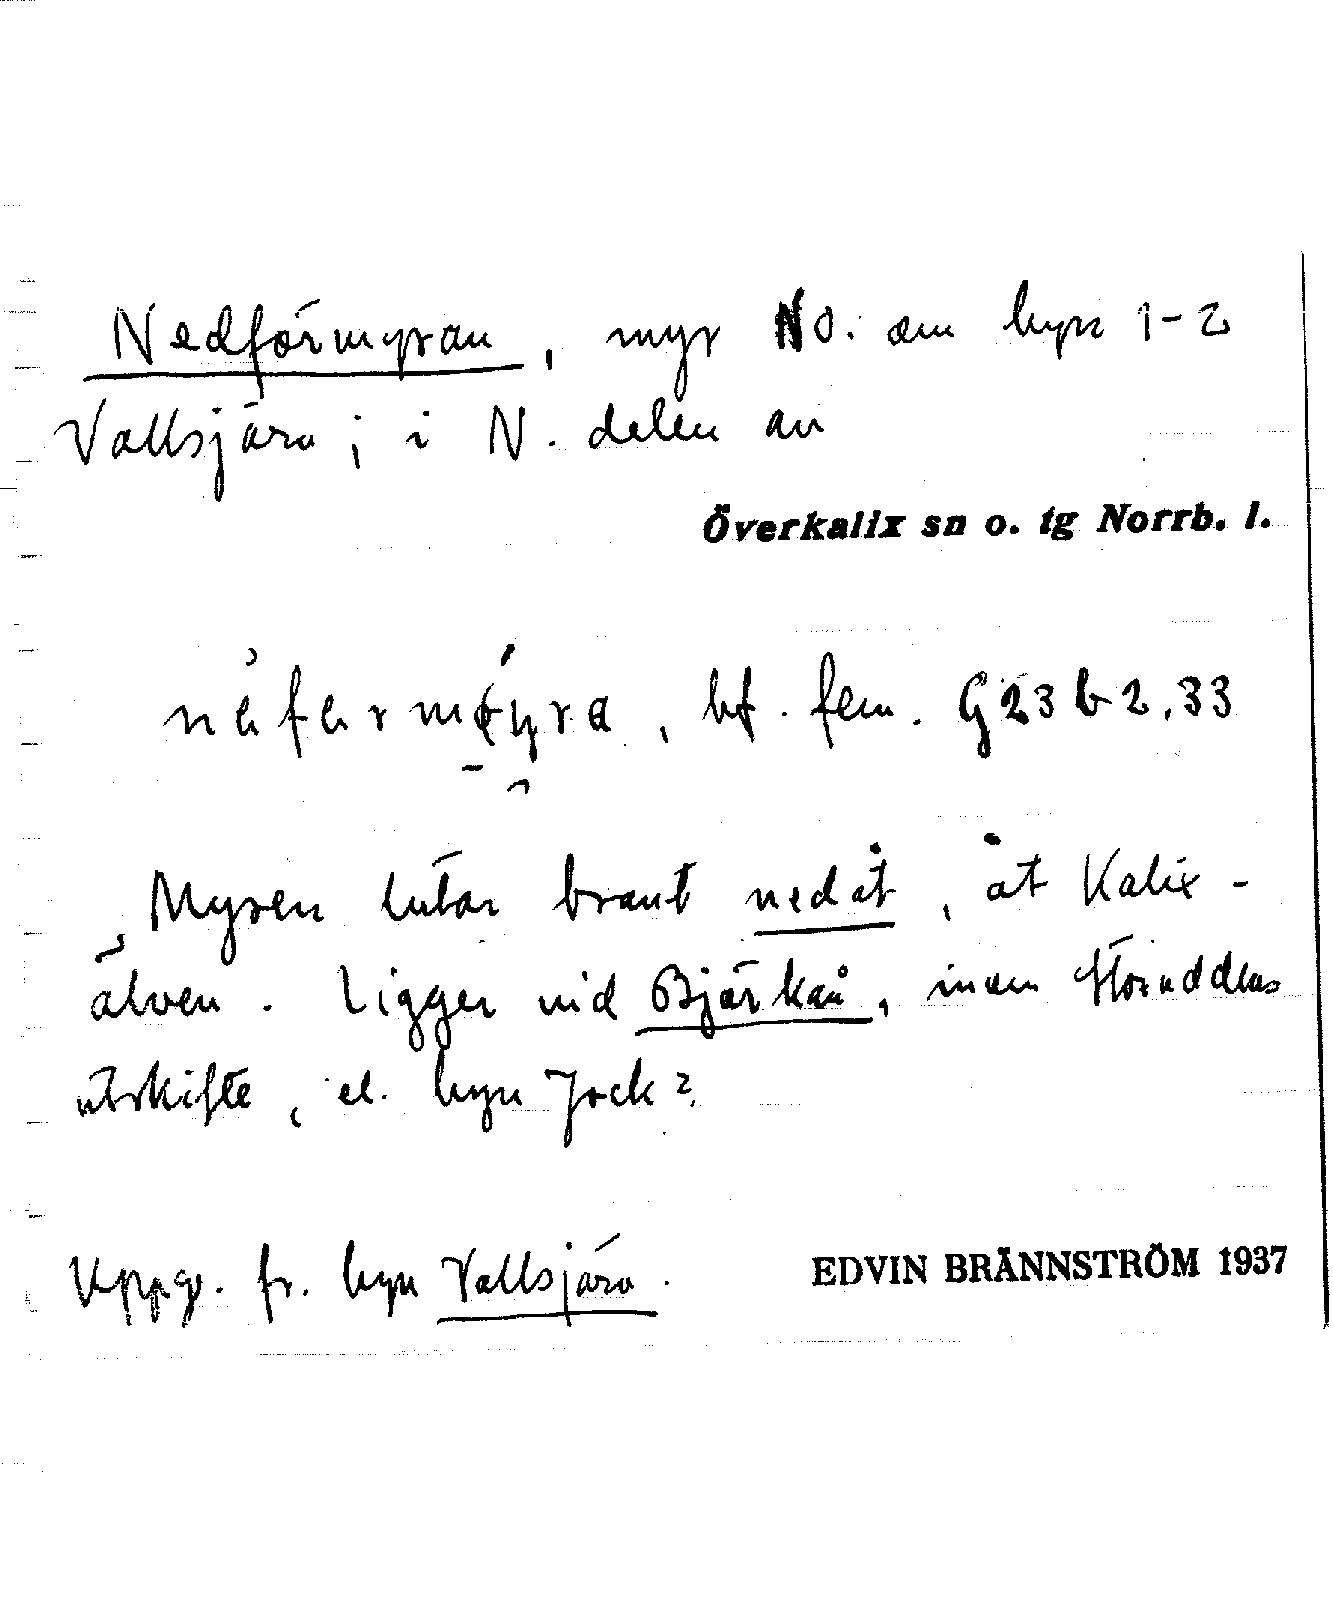 Nedförmyran, myr NO. om byn 1-2
Vallsjärv; i N. delen av
Överkalix sn o. tg Norrb. l.
bf. fem. G23b2,33
Myren lutar brant nedåt, åt Kalix-
älven. Ligger vid Bjärkån, inom Storuddens
utskifte, el. byn Jock?
Uppg. fr. byn Vallsjärv.
EDVIN BRÄNNSTRÖM 1937